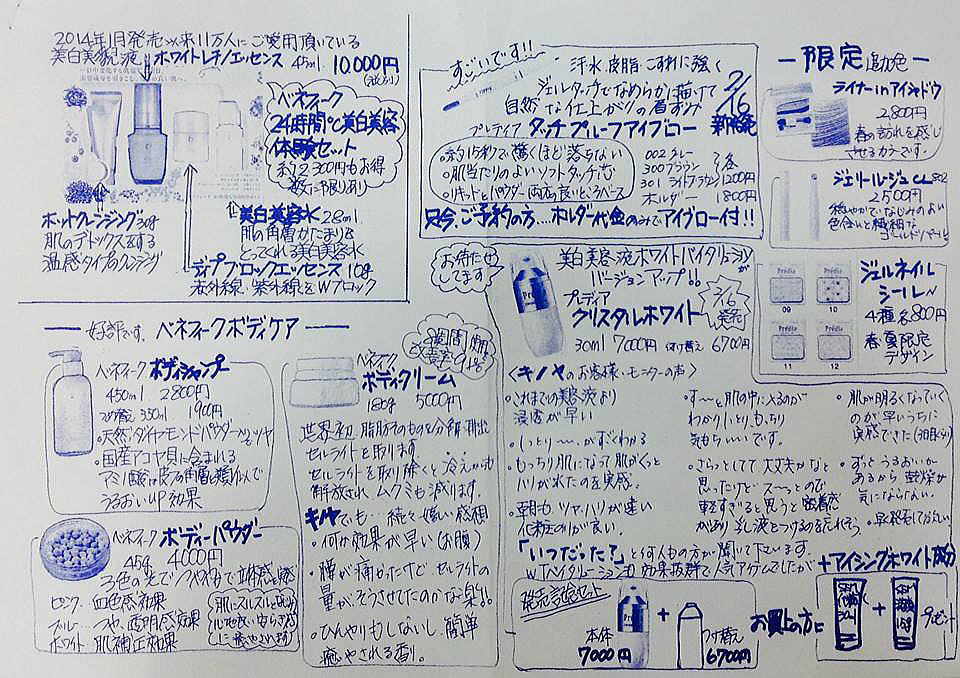 2014年1月発売以来11万人にご愛用頂いている
美白美容液 ホワイトレチノエッセンス 45ml 10,000円
(税別)
ベネフィーク
24時間℃美白美容
体験セット
約2,300円もお得
数に限りあり
ホットクレンジング30g
肌のデトックスをする
温感タイプのクレンジング
美白美容水 28ml
肌の角層かたまりを
とってくれる美白美容水
ディープブロックエッセンス 10g
赤外線・紫外線をWブロック
すごいです!!
汗水 皮脂 こすれに強く
ジェルタッチでなめらかに描けて
自然な仕上がりの眉ずみ
2/16
新発売
プレディア タッチプルーフアイブロー
・約15秒で驚くほど落ちない
・肌当たりのよいソフトタッチ芯
・リキッドとパウダー両店の良いところベース
002 グレー
300 ブラウン
301 ライトブラウン 1200円
ホルダー 1800円
只今、ご予約の方…ホルダー代金のみでアイブロー付!!
― 限定 追加色 ―
ライナーinアイシャドウ
2,800円
春の訪れを感じ
させるカラーです。
ジェリールージュCL 802
2500円
色合いと繊細な
ゴールドパール
お待たせ
してます
美白美容液ホワイトバイタリレーションが
バージョンアップ!!
プレディア
クリスタルホワイト
2/16
発売
30ml 7000円 付け替え 6700円
ジェルネイル
シール
4種各800円
春夏限定
デザイン
Prédia
Prédia
09 10
Prédia
Prédia
11 12
― 好評です。ベネフィークボディケア ―
ベネフィーク ボディシャンプー
450ml 2800円
つめ替え 350ml 1900円
・天然ダイヤモンドパウダー
・国産アコヤ貝に含まれる
アミノ酸は皮フの角層を
うるおいUP効果
8週間
改善率91%
ベネフィーク
ボディクリーム
180g 5000円
世界初 脂肪そのものを分解・排出
セルライトを取ります。
セルライトを取り除くと冷えからも
解放され、ムクミも減ります。
キノヤでも…続々嬉しい感想
・何か効果が早い(お腹)
・腰が痛かったけど、セルライトの
量がそうさせてたのかな
・ひんやりもしないし、簡単
癒やされる香り。
ベネフィーク ボディーパウダー
45g 4000円
3色の光でツヤメキで立体感を
ピンク… 血色感効果
ブルー… つや、透明感効果
ホワイト 肌補正効果
<キノヤのお客様・モニターの声>
・これまでの美容液より
浸透が早い
・しっとり〜、がすぐわかる
・もっちり肌になって肌がぐっと
ハリがでたのを実感。
・朝も ツヤ、ハリが違い
化粧のりが良い。
・す〜と肌の中に入るのが
わかりしっとりもっちり
気もちいいです。
・さらっとしてて大丈夫かなと
思ったけど、ス〜ッとので
軽すぎると思うと密着感
があり 乳液をつけるのをためらう
・肌が明るくなっていく
のが早いうちに
実感できた(3日目くらい)
・ずっとうるおいが
あるから 乾燥が
気にならない。
「いつだった?」と何人もの方が聞いて下さいます。
Wバイタリレーションも効果抜群で人気アイテムでしたが
+アイシングホワイト成分
発売記念セット
本体
7000円
+
つけ替え
6700円
お買上の方に
+
プレゼント